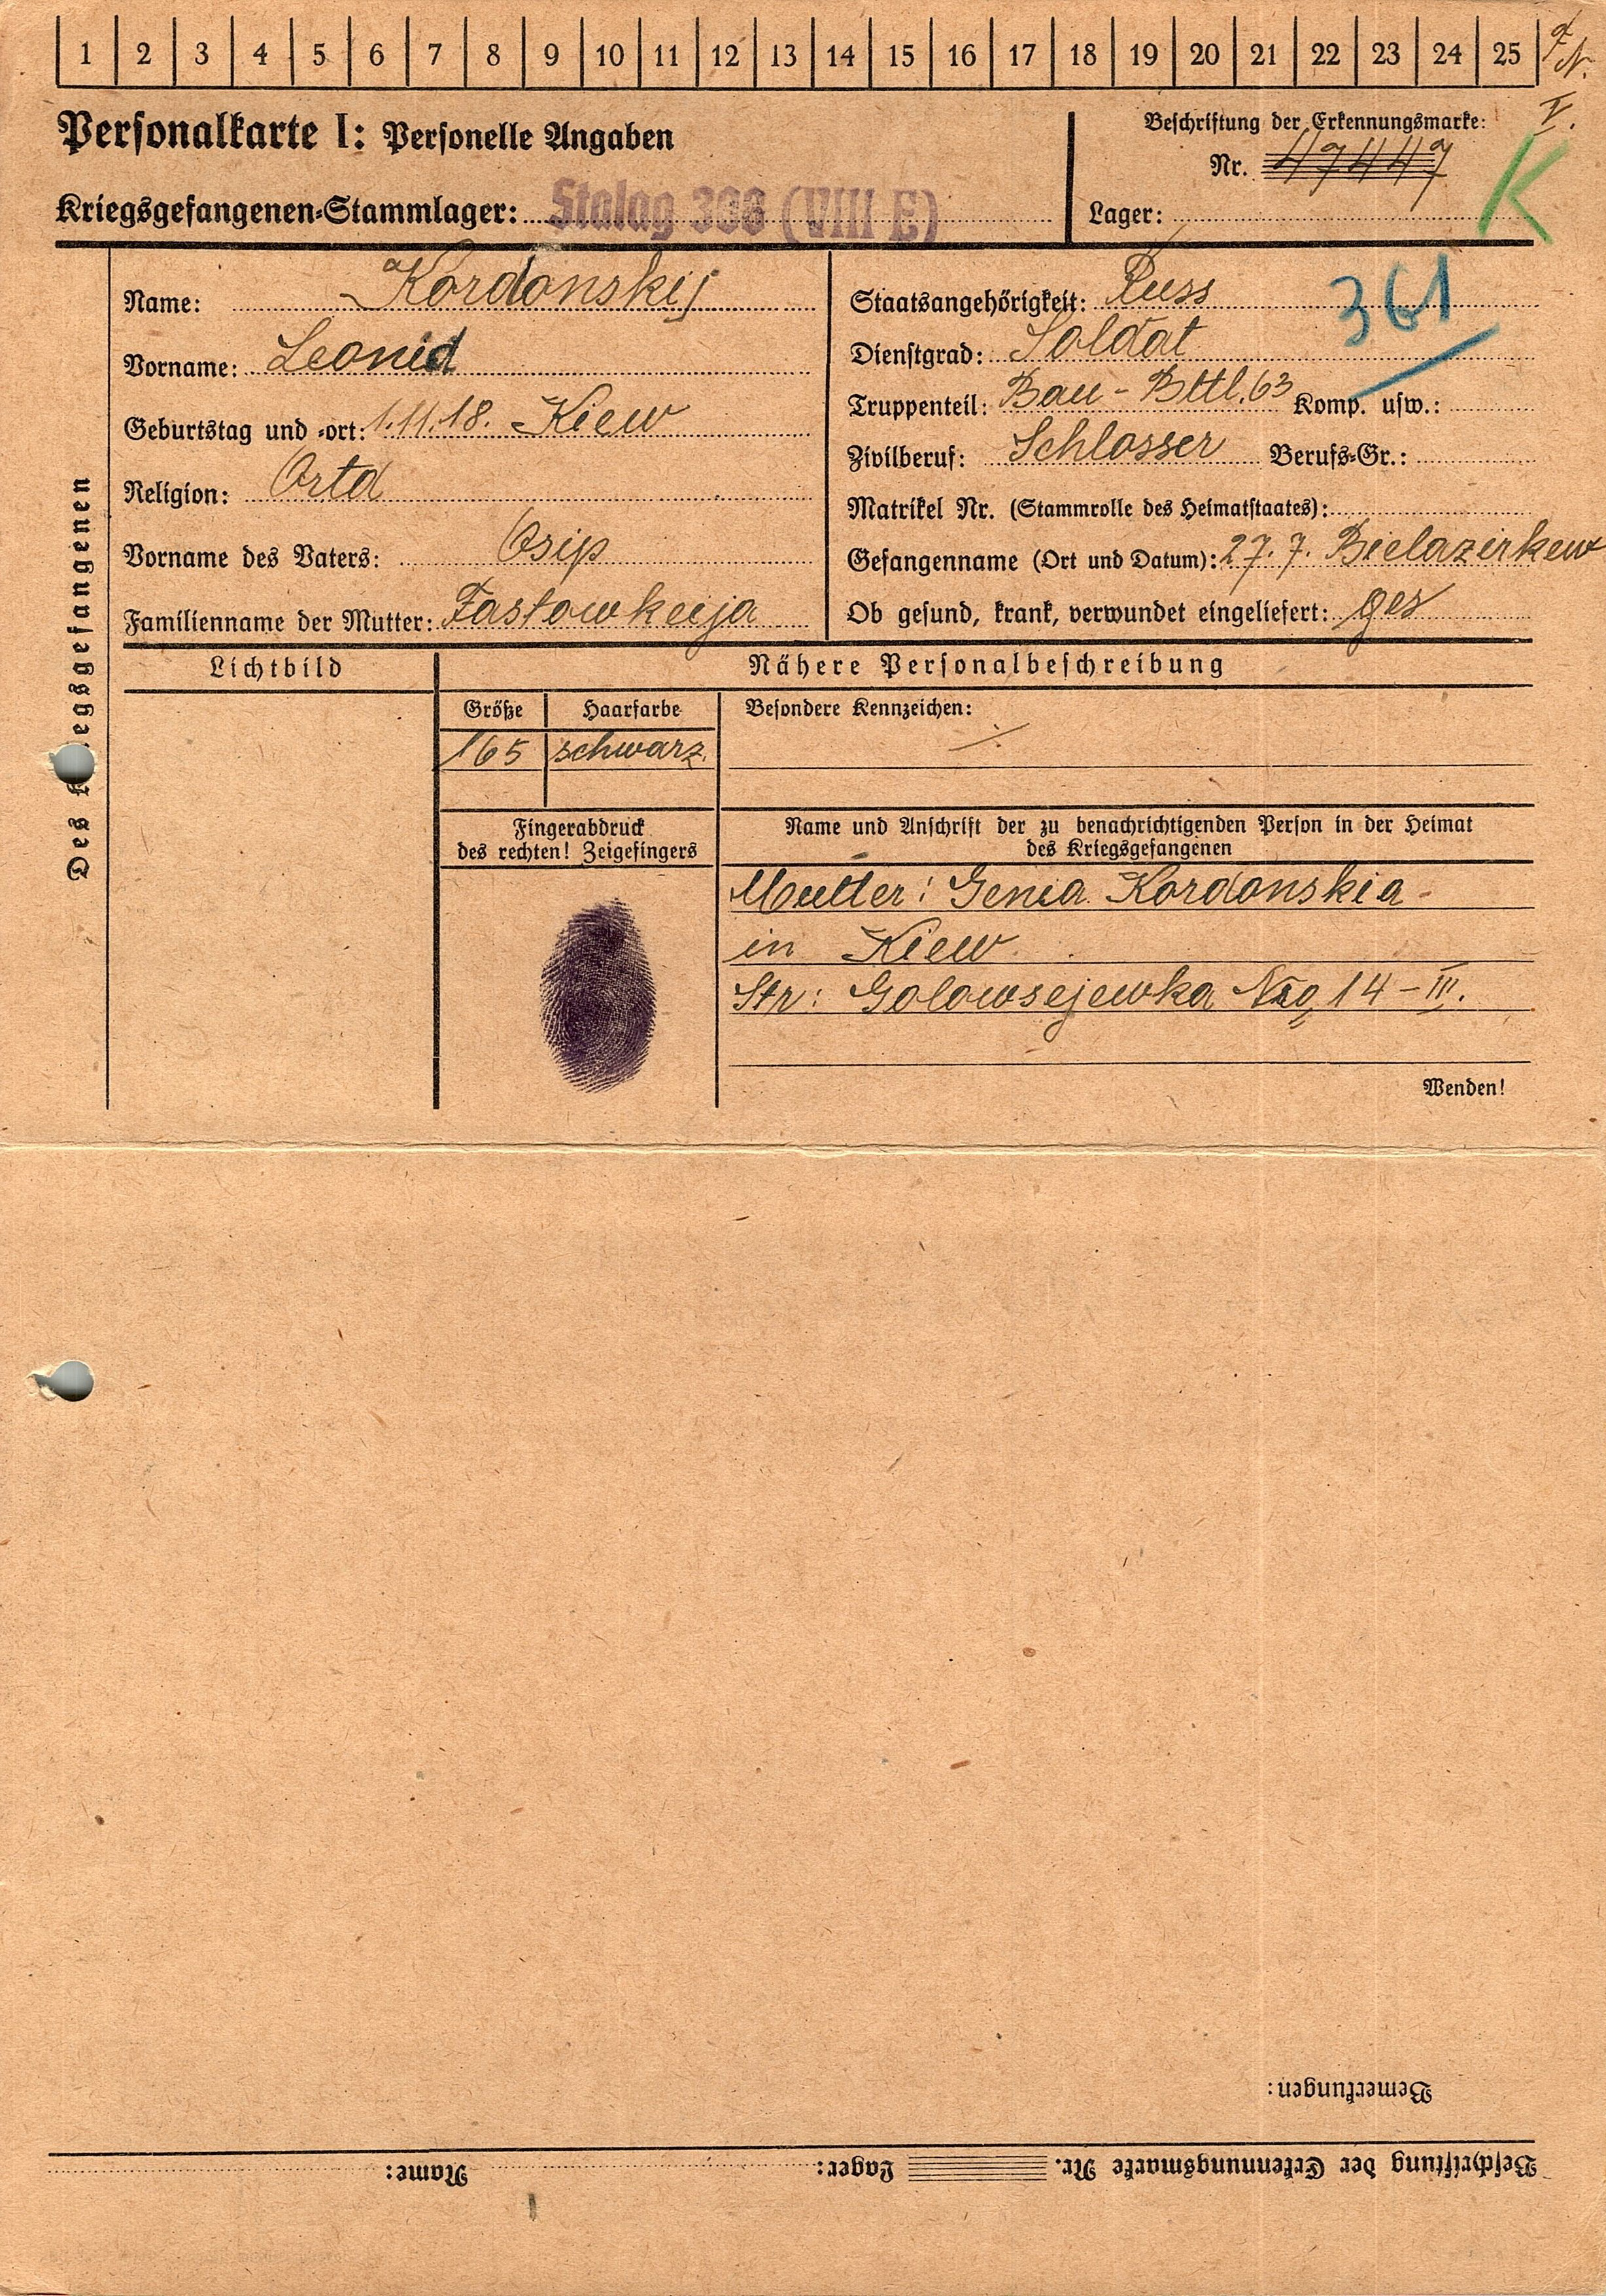 1 2 3 4 5 6 7 8 9 10 11 12 13 14 15 16 17 18 19 20 21 22 23 24 25
Personalkarte I: Personelle Angaben
Kriegsgefangenen-Stammlager: Stalag 308 (VIII E)
Beschriftung der Erkennungsmarke:
Nr. 47447
Lager:
V.
K
361
Des Kriegsgefangenen
Name: Kordonskij
Vorname: Leonid
Geburtstag und -ort: 1.11.18. Kiew
Religion: Ortd
Vorname des Vaters: Osip
Familienname der Mutter: Fastowkeija
Staatsangehörigkeit: Russ
Dienstgrad: Soldat
Truppenteil: Bau-Bttl. 63 Komp. usw.:
Zivilberuf: Schlosser Berufs-Gr.:
Matrikel Nr. (Stammrolle des Heimatstaates):
Gefangenname (Ort und Datum): 27.7. Bielazerkew
Ob gesund, krank, verwundet eingeliefert: ges
Lichtbild
Nähere Personalbeschreibung
Größe Haarfarbe Besondere Kennzeichen:
165 schwarz.
Fingerabdruck
des rechten! Zeigefingers
Name und Anschrift der zu benachrichtigenden Person in der Heimat
des Kriegsgefangenen
Mutter: Genia Kordonskia -
in Kiew
Str: Golowsejewka Nro 14 - III.
Wenden!
Bemerkungen:
Beschriftung der Erkennungsmarke Nr. Lager: Name: